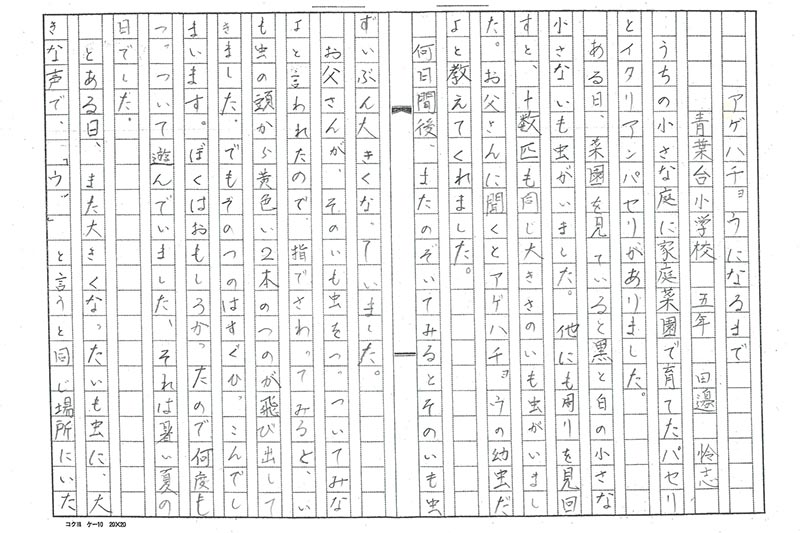 アゲハチョウになるまで
青葉台小学校 五年 田邉 怜志
うちの小さな庭に家庭菜園で育てたパセリ
とイタリアンパセリがありました。
ある日、菜園を見ていると黒と白の小さな
小さないも虫がいました。他にも周りを見回
すと、十数匹も同じ大きさのいも虫がいまし
た。お父さんに聞くとアゲハチョウの幼虫だ
よと教えてくれました。
何日間後、またのぞいてみるとそのいも虫
ずいぶん大きくなっていました。
お父さんが、そのいも虫をつっついてみな
よと言われたので、指でさわってみると、い
も虫の頭から黄色い2本のつのが飛び出して
きました。でもそのつのはすぐひっこんでし
まいます。ぼくはおもしろかったので何度も
つっついて遊んでいました、それは暑い夏の
日でした。
とある日、また大きくなったいも虫に、大
きな声で、「ウ゛」と言うと同じ場所にいた
コクヨ ケー10 20×20